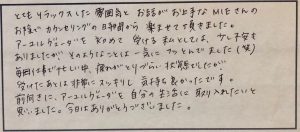 とてもリラックスした雰囲気と お話がお上手な MIEさんの
お陰で カウンセリングの時間から 楽ませて頂きました。
アーユルヴェーダを 初めて 受ける 私としては、少し不安も
ありましたが そのようなことは 一気に フッとんでました(笑)
毎日仕事で忙しい中、疲れがとりづらい 状態でしたが
受けたあとは 非常に スッキリし 気持ち良かったです。
前向きに、アーユルヴェーダを 自分の生活に 取り入れたいと
思いました。今日は ありがとうございました。